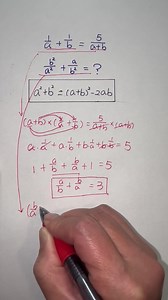 1/a + 1/b = 5/(a+b)
b²/a² + a²/b² = ?
a²+b² = (a+b)² - 2ab
(a+b) × (1/a + 1/b) = 5/(a+b) × (a+b)
a·1/a + a·1/b + b·1/a + b·1/b = 5
1 + a/b + b/a + 1 = 5
a/b + b/a = 3
(b/a